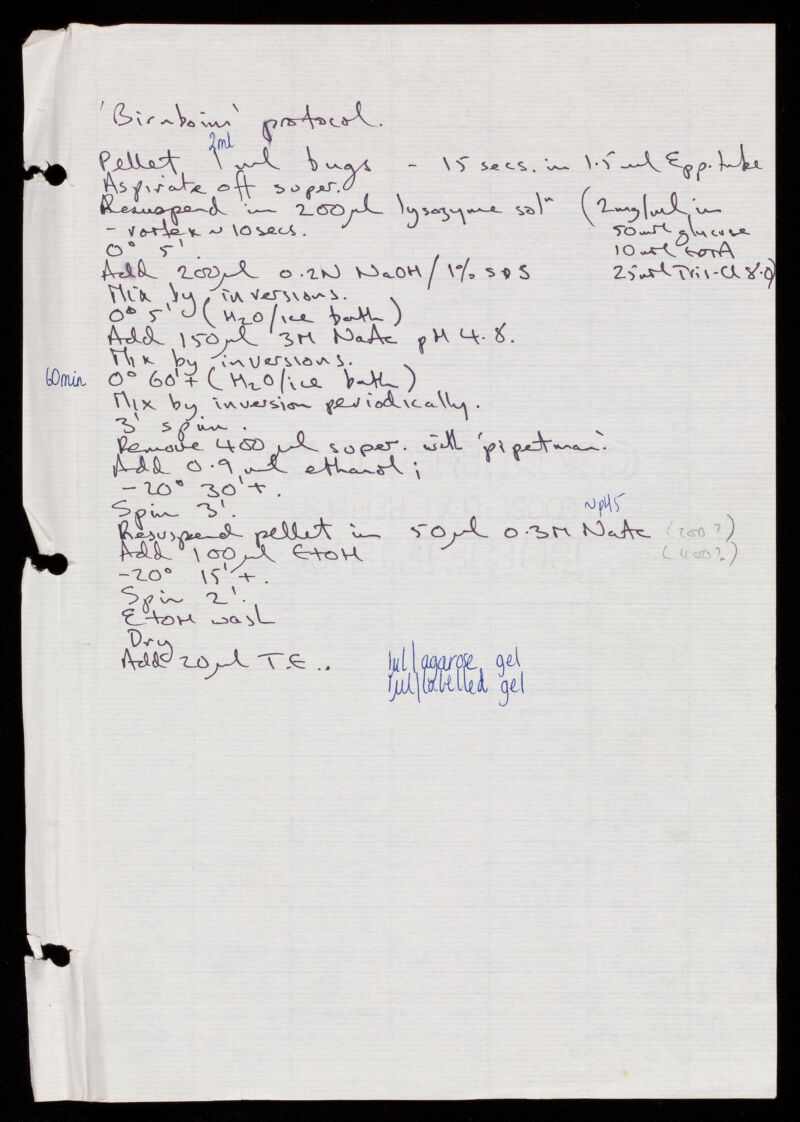 'Birnboim' protocol.
2ml
Pellet 1 ml bugs - 15 secs. in 1.5 ml Epp. tube
Aspirate off super.
Resuspend in 200μl lysozyme solⁿ (2mg/ml in
- vortex ~ 10 secs. 50mM glucose
0° 5'. 10mM EDTA
Add 200μl 0.2N NaOH/1% SDS 25mM Tris-Cl 8.0)
Mix by inversions.
0° 5' (H2O/ice bath)
Add 150μl 3M NaAc pH 4.8.
Mix by inversions.
60min 0° 60'+ (H2O/ice bath)
Mix by inversion periodically.
3' spin.
Remove 400 μl super. with 'pipetman'.
Add 0.9 ml ethanol;
-20° 30'+.
Spin 3'.
~pH5
Resuspend pellet in 50μl 0.3M NaAc (200?)
Add 100μl EtOH (400?)
-20° 15'+.
Spin 2'.
EtOH wash
Dry
Add 20μl T.E..
1μl/agarose gel
1μl/labelled gel